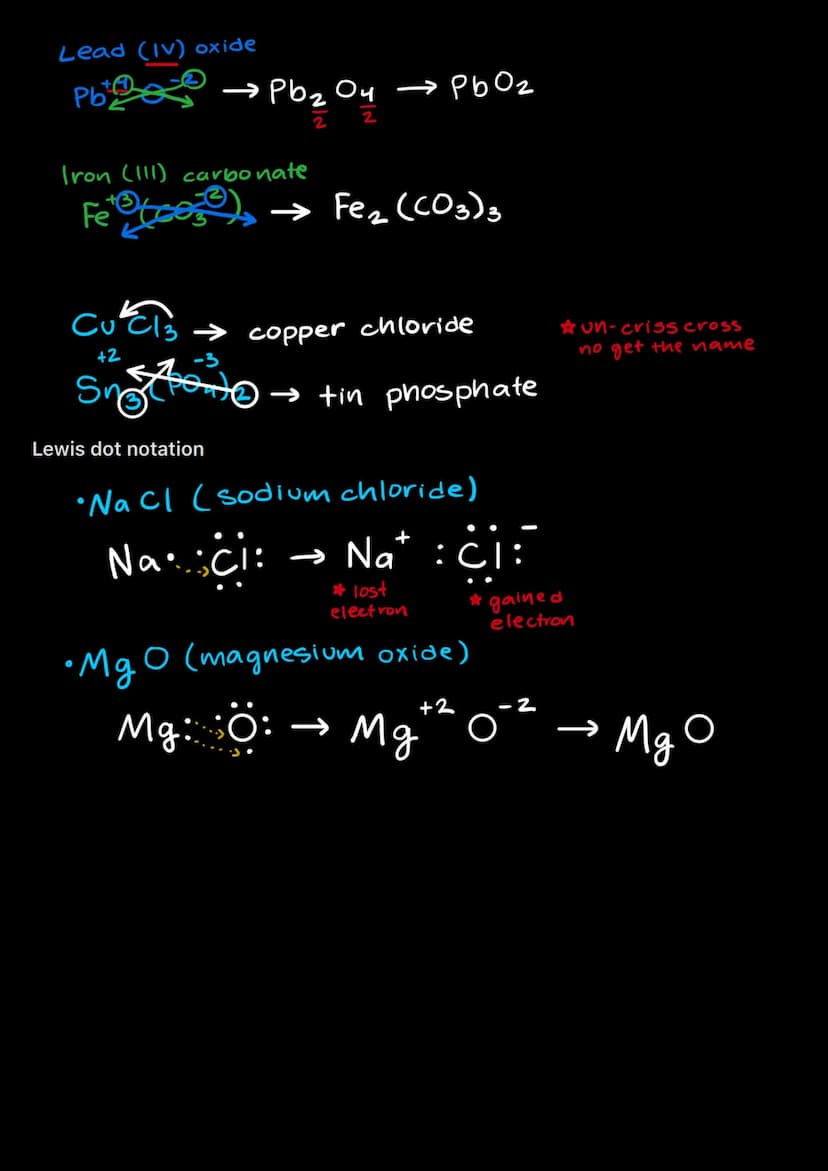 Lead (IV) oxide
Pb⁺⁴ O⁻² → Pb₂O₄ → PbO₂
2 2
Iron (III) carbonate
Fe⁺³(CO₃⁻²) → Fe₂(CO₃)₃
CuCl₃ → copper chloride
★ un-criss cross
no get the name
+2 -3
Sn₃(PO₄)₂ → tin phosphate
Lewis dot notation
• NaCl (sodium chloride)
Na· :Cl: → Na⁺ :Cl:⁻
★ lost
electron
★ gained
electron
• MgO (magnesium oxide)
Mg: :O: → Mg⁺² O⁻² → MgO